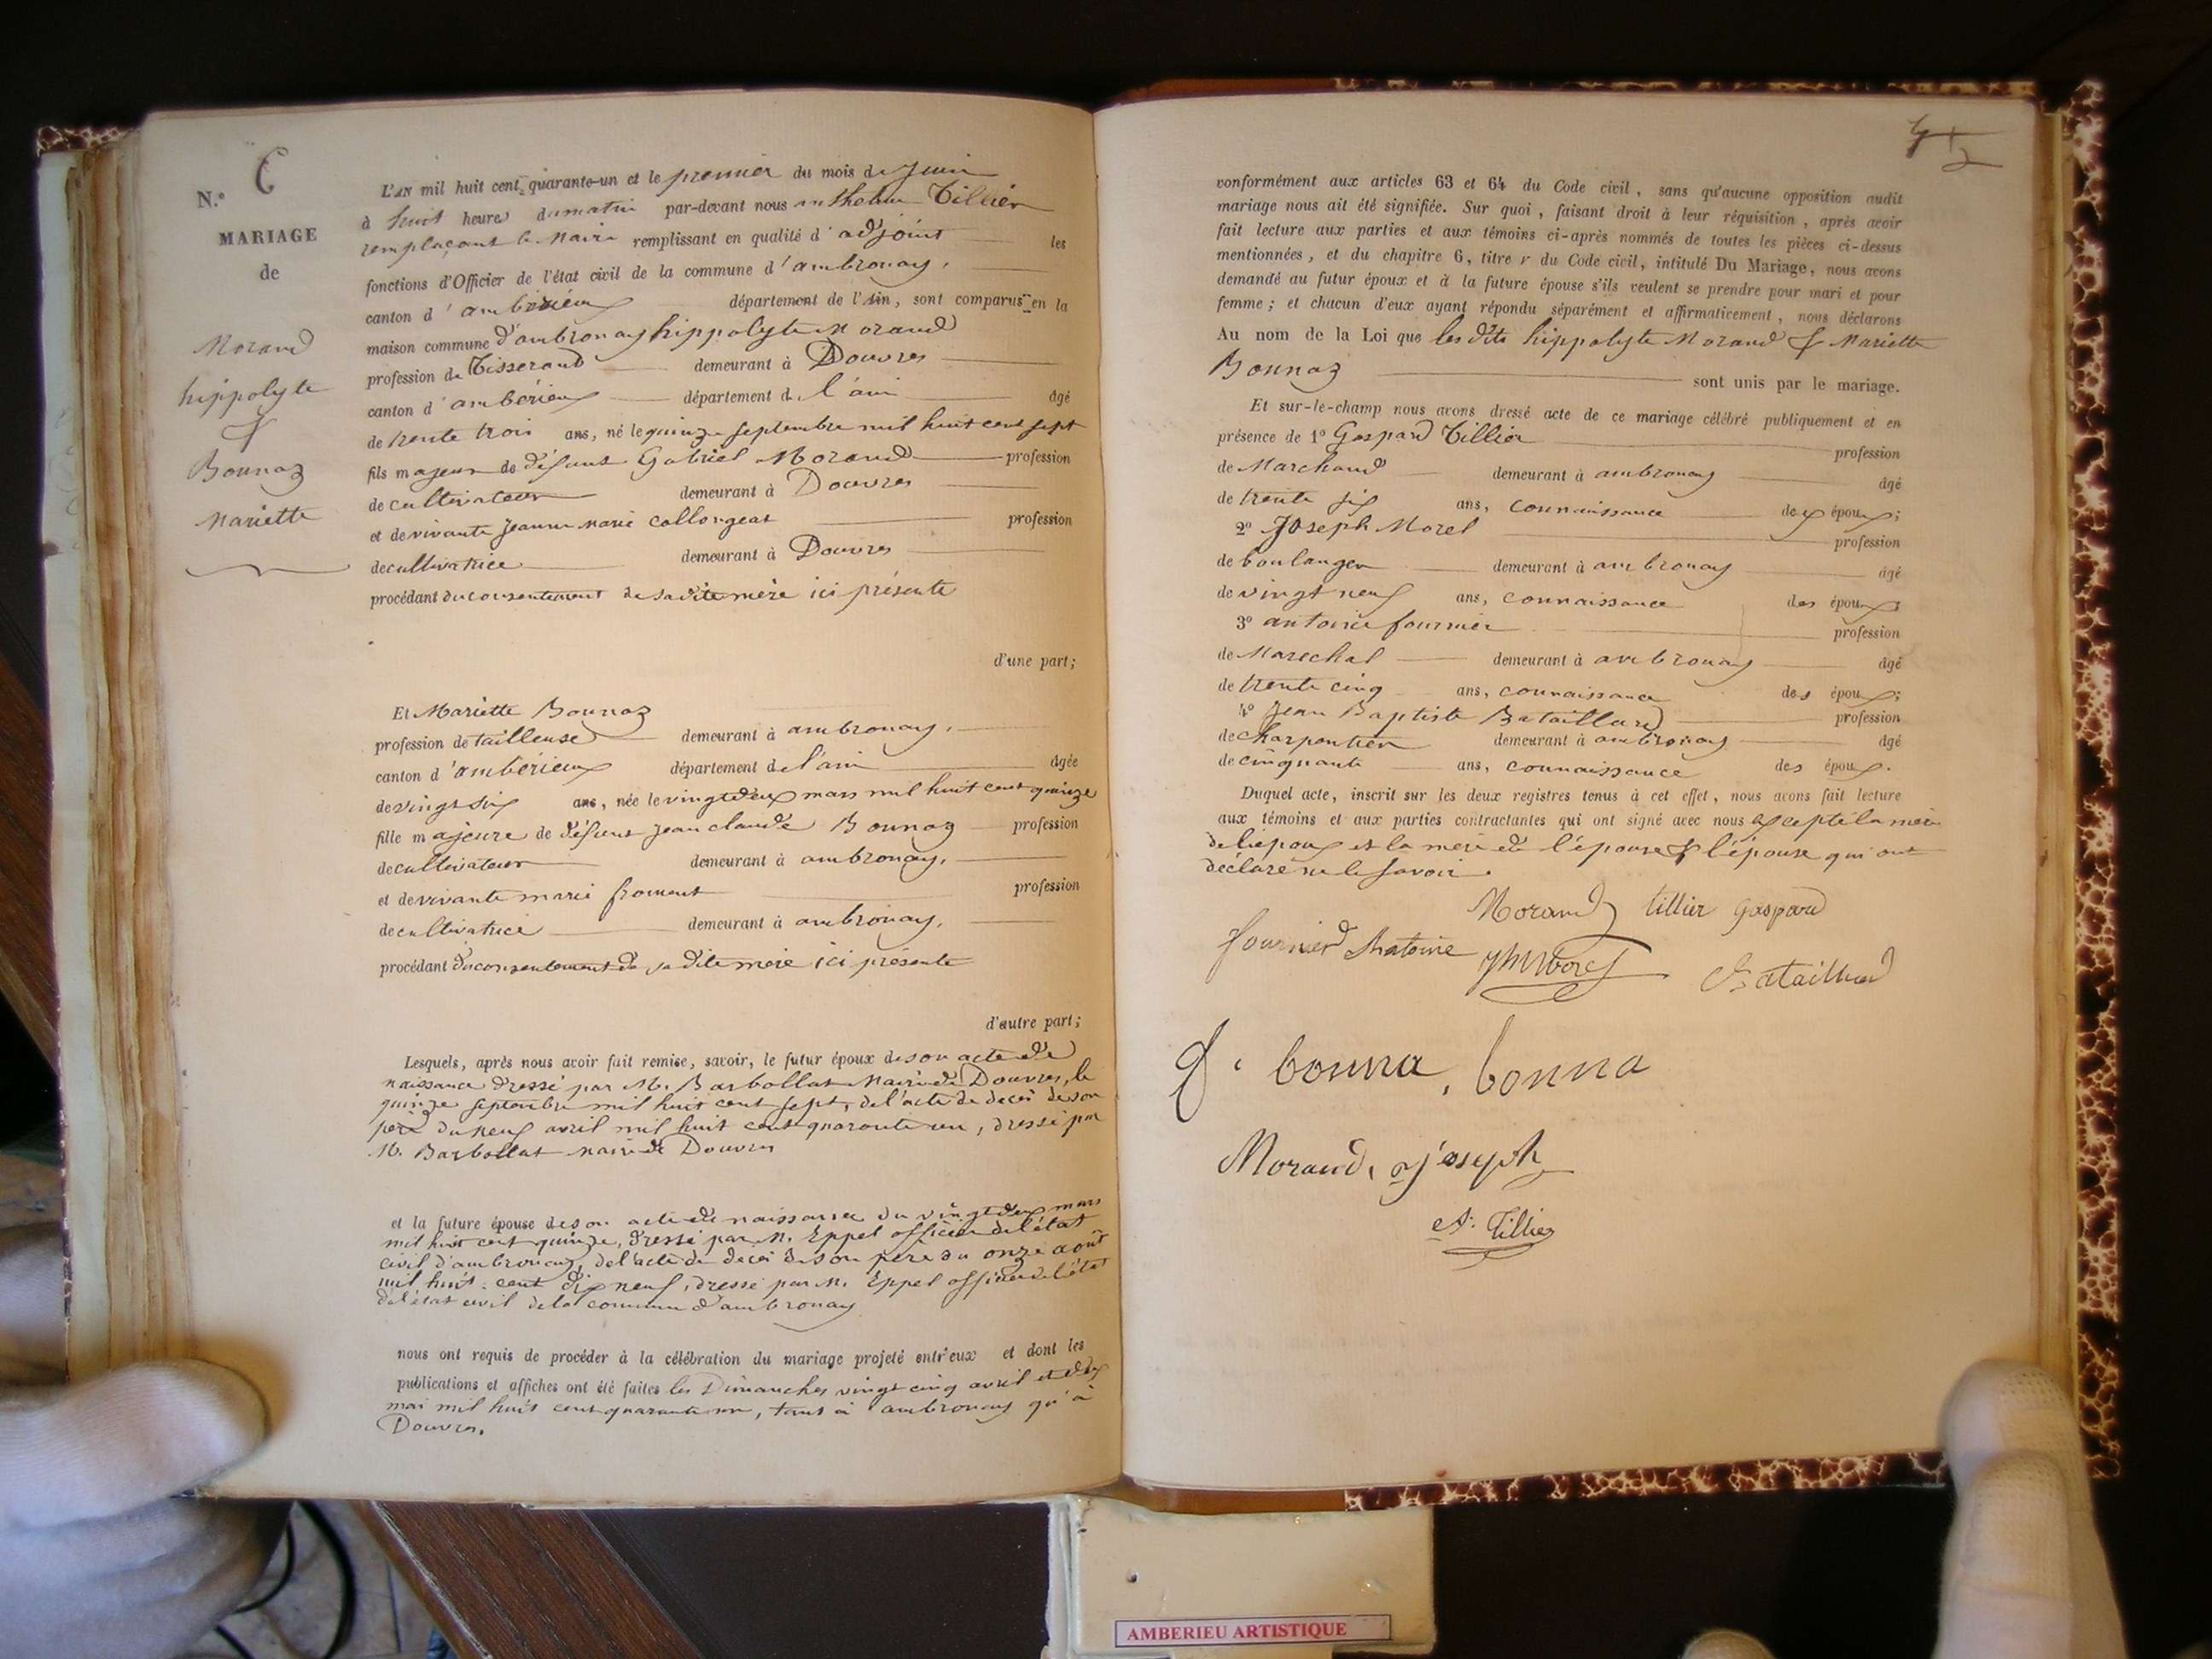 N.º 6
MARIAGE
de
Morand
hippolyte
&
Bonnaz
Mariette
L'AN mil huit cent quarante-un et le premier du mois de Juin
à huit heures du matin par-devant nous anthelme Tillier
remplaçant le Maire remplissant en qualité d'adjoint les
fonctions d'Officier de l'état civil de la commune d'ambronay,
canton d'ambérieux département de l'Ain, sont comparus en la
maison commune d'ambronay hippolyte Morand
profession de Tisserand demeurant à Douvres
canton d'ambérieux département de l'ain âgé
de trente trois ans, né le quinze septembre mil huit cent sept
fils majeur de défunt Gabriel Morand profession
de cultivateur demeurant à Douvres
et de vivante Jeanne Marie Collongeat profession
de cultivatrice demeurant à Douvres
procédant du consentement de sa dite mère ici présente
d'une part;
Et Mariette Bonnaz
profession de tailleuse demeurant à ambronay,
canton d'ambérieux département de l'ain âgée
de vingt six ans, née le vingt deux mars mil huit cent quinze
fille majeure de défunt jean claude Bonnaz profession
de cultivateur demeurant à ambronay,
et de vivante marie froment profession
de cultivatrice demeurant à ambronay,
procédant du consentement de sa dite mère ici présente
d'autre part;
Lesquels, après nous avoir fait remise, savoir, le futur époux de son acte de
naissance dressé par M. Barbollat Maire de Douvres, le
quinze septembre mil huit cent sept, de l'acte de décès de son
père du neuf avril mil huit cent quarante un, dressé par
M. Barbollat maire de Douvres
et la future épouse de son acte de naissance du vingt deux mars
mil huit cent quinze, dressé par M. Eppel officier de l'état
civil d'ambronay, de l'acte de décès de son père du onze août
mil huit cent dix neuf, dressé par M. Eppel officier de l'état
de l'état civil de la commune d'ambronay
nous ont requis de procéder à la célébration du mariage projeté entr'eux et dont les
publications et affiches ont été faites les Dimanches vingt cinq avril et deux
mai mil huit cent quarante un, tant à ambronay qu'à
Douvres.
conformément aux articles 63 et 64 du Code civil, sans qu'aucune opposition audit
mariage nous ait été signifiée. Sur quoi, faisant droit à leur réquisition, après avoir
fait lecture aux parties et aux témoins ci-après nommés de toutes les pièces ci-dessus
mentionnées, et du chapitre 6, titre v du Code civil, intitulé Du Mariage, nous avons
demandé au futur époux et à la future épouse s'ils veulent se prendre pour mari et pour
femme; et chacun d'eux ayant répondu séparément et affirmativement, nous déclarons
Au nom de la Loi que les dits hippolyte Morand & Mariette
Bonnaz sont unis par le mariage.
Et sur-le-champ nous avons dressé acte de ce mariage célébré publiquement et en
présence de 1º Gaspard Tillier profession
de Marchand demeurant à ambronay âgé
de trente six ans, connaissance des époux;
2º Joseph Morel profession
de boulanger demeurant à ambronay âgé
de vingt neuf ans, connaissance des époux;
3º antoine fournier profession
de Marechal demeurant à ambronay âgé
de trente cinq ans, connaissance des époux;
4º Jean Baptiste Bataillard profession
de charpentier demeurant à ambronay âgé
de cinquante ans, connaissance des époux.
Duquel acte, inscrit sur les deux registres tenus à cet effet, nous avons fait lecture
aux témoins et aux parties contractantes qui ont signé avec nous excepté la mère
de l'époux et la mère de l'épouse & l'épouse qui ont
déclaré ne le savoir.
Morand tillier gaspard
fournier Antoine Morel Bataillard
bonna, bonna
Morand, joseph
A. Tillier
AMBERIEU ARTISTIQUE